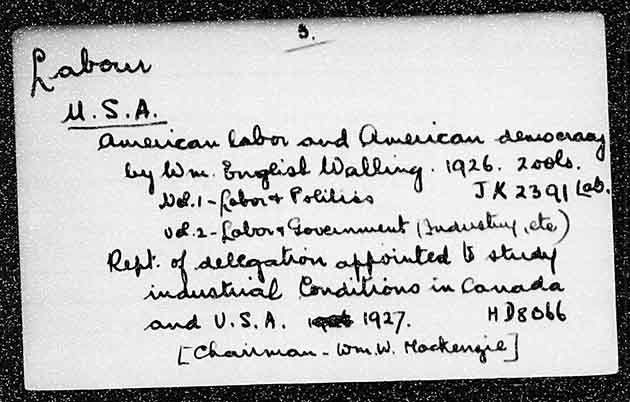 3.
Labour
U.S.A.
American labor and American democracy
by Wm. English Walling. 1926. 2 vols.
Vol. 1 - Labor & Politics JK 2391 Lab.
Vol. 2 - Labor & Government (Industry, etc)
Rept. of delegation appointed to study
industrial Conditions in Canada
and U.S.A. 1927. HD8066
[Chairman - Wm. W. Mackenzie]